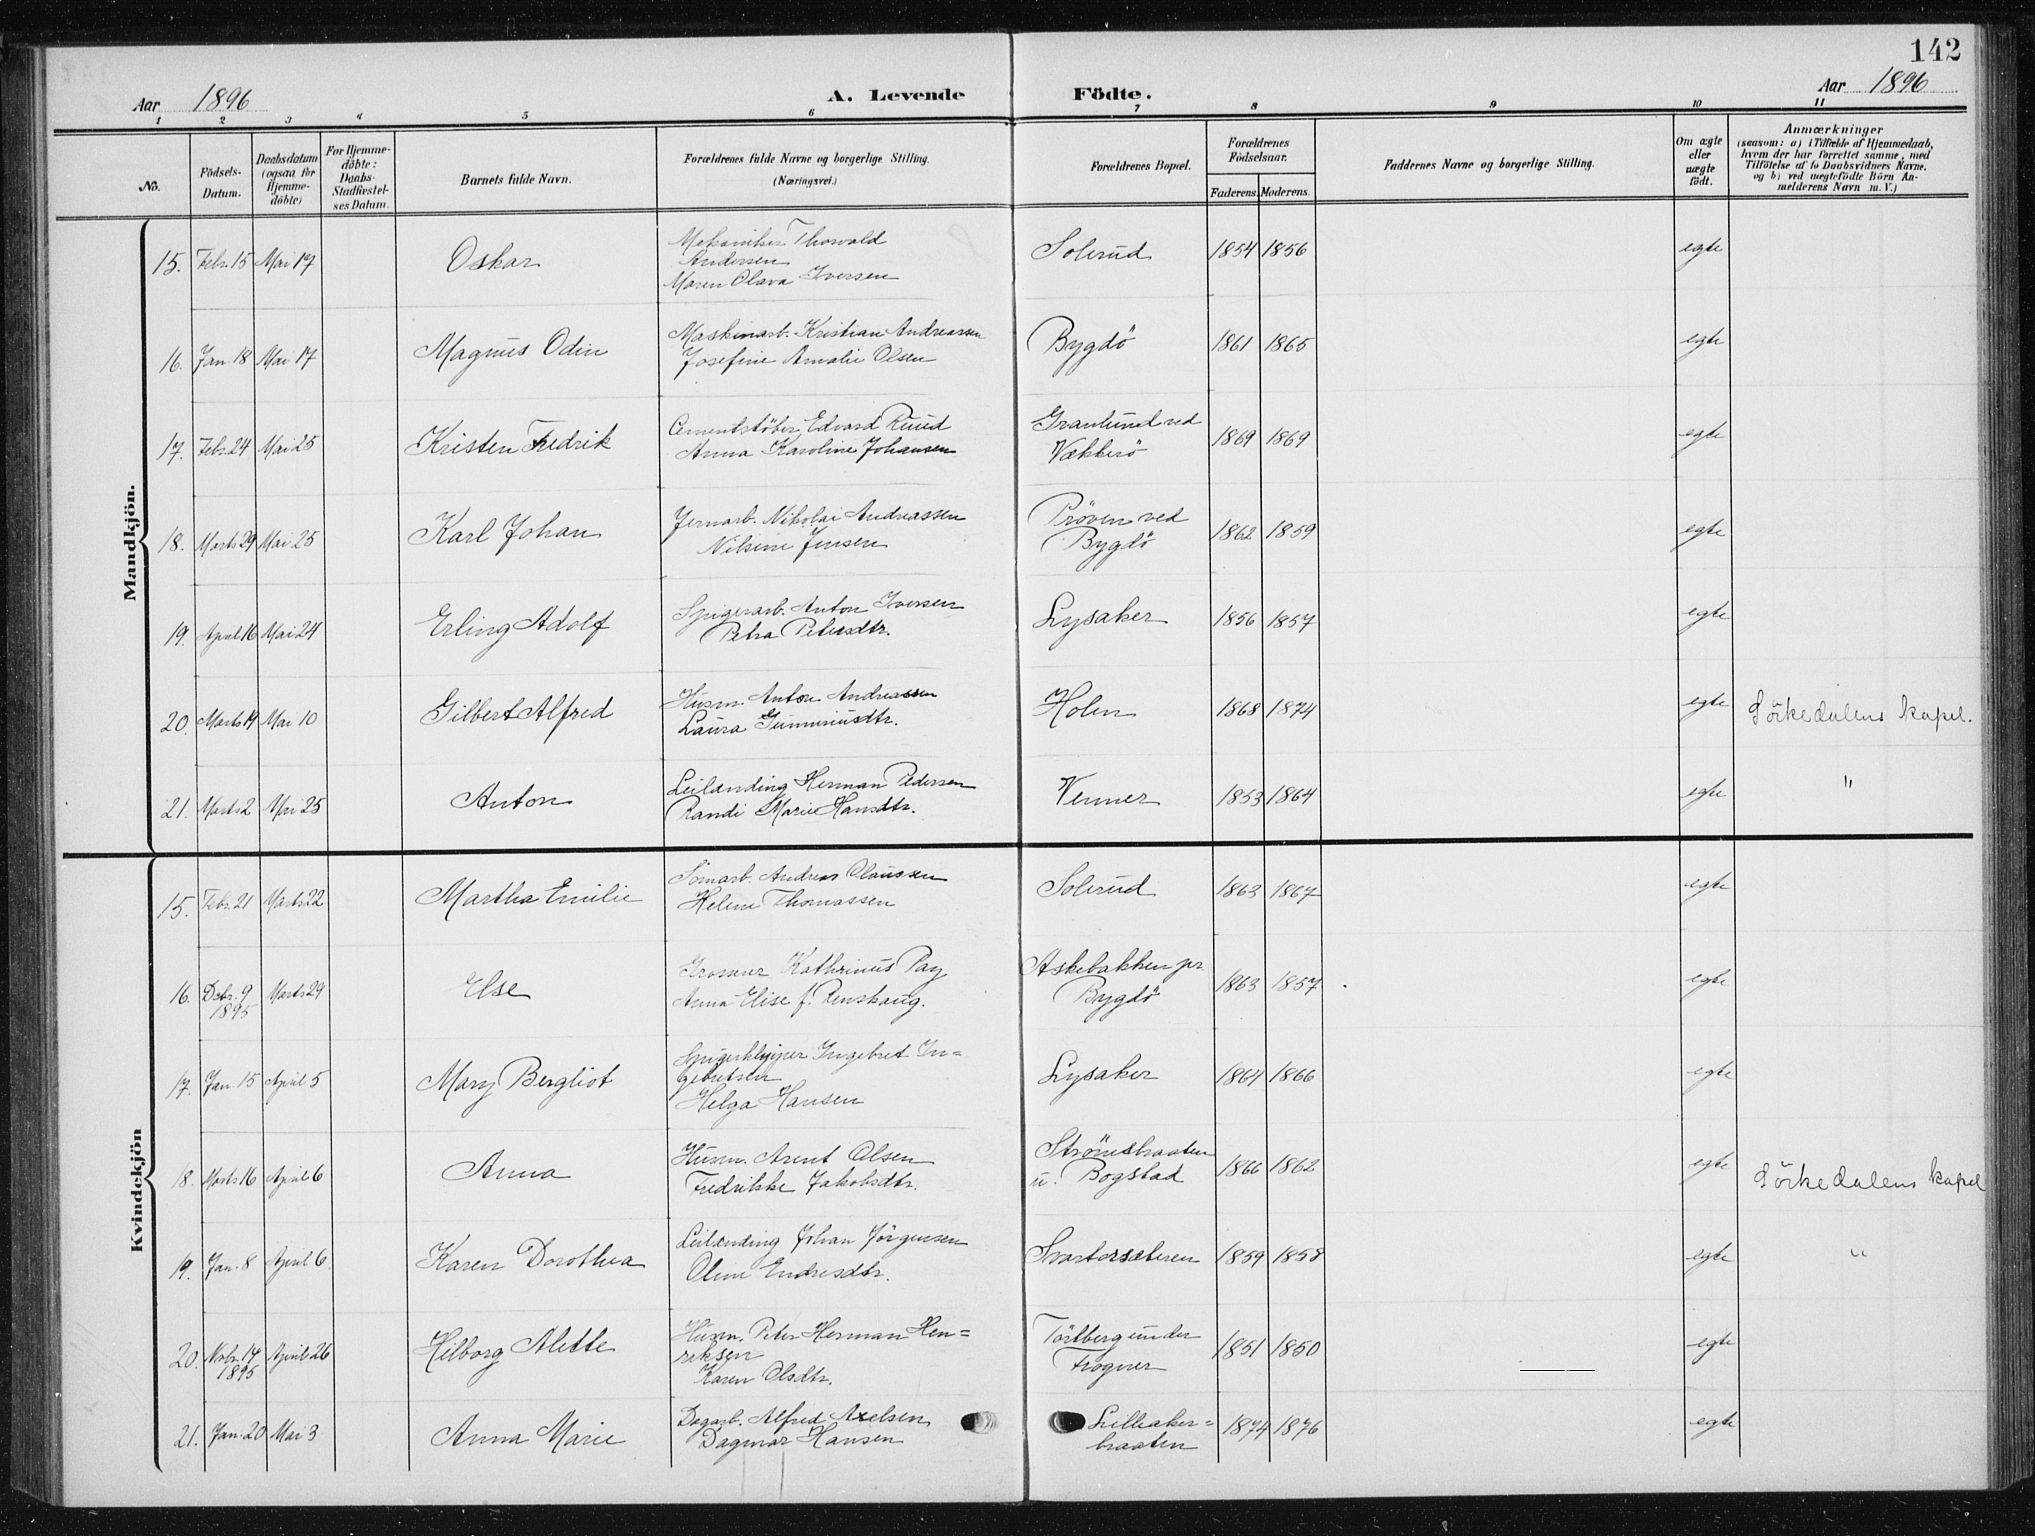 142
Aar 1896 A. Levende Födte. Aar 1896
1 2 3 4 5 6 7 8 9 10 11
No.
Födsels-
Datum.
Daabsdatum
(ogsaa for
Hjemme-
döbte)
For Hjemme-
döbte:
Daabs-
Stadfæstel-
ses Datum.
Barnets fulde Navn.
Forældrenes fulde Navne og borgerlige Stilling.
(Næringsvei.)
Forældrenes Bopæl.
Forældrenes
Födselsaar.
Faderens. Moderens.
Faddernes Navne og borgerlige Stilling.
Om ægte
eller
uægte
födt.
Anmærkninger
(saasom: a) i Tilfælde af Hjemmedaab,
hvem der har forrettet samme, med
Tilföielse af to Daabsvidners Navne,
og b) ved uægtefödte Börn An-
melderens Navn m. V.)
Mandkjön.
15. Febr. 15 Mai 17 Oskar
Mekaniker Thorvald
Andersen
Maren Olava Iversen
Solerud 1854 1856 egte
16. Jan. 18 Mai 17 Magnus Odin
Maskinarb. Kristian Andreassen
Josefine Amalie Olsen
Bygdö 1861 1865 egte
17. Febr. 24 Mai 25 Kristen Fredrik
Cementstöber Edvard Ruud
Anna Karoline Johansen
Granlund ved
Vækkerö
1869 1869 egte
18. Marts 29 Mai 25 Karl Johan
Jernarb. Nikolai Andreassen
Nilsine Jensen
Pröven ved
Bygdö
1862 1859 egte
19. April 16 Mai 24 Erling Adolf
Spigerarb. Anton Iversen
Petra Petersdtr.
Lysaker 1856 1857 egte
20. Marts 19 Mai 10 Gilbert Alfred
Husm. Anton Andreassen
Laura Gunneriusdtr.
Holen 1868 1874 egte Sörkedalens kapel.
21. Marts 2 Mai 25 Anton
Leilænding Herman Pedersen
Randi Marie Hansdtr.
Venner 1853 1864 egte "
Kvindekjön
15. Febr. 21 Marts 22 Martha Emilie
Tömarb. Andreas Claussen
Helene Thomassen
Solerud 1863 1867 egte
16. Debr. 9
1895
Marts 29 Else
Grosserer Kathrinus Pay
Anna Elise f. Renskaug.
Askebakken pr
Bygdö
1863 1857 egte
17. Jan. 15 April 5 Mary Bergliot
Spigerklipper Ingebret In=
gebretsen
Helga Hansen
Lysaker 1864 1866 egte
18. Marts 16 April 6 Anna
Husm. Arent Olsen
Fredrikke Jakobsdtr.
Strömsbraaten
u. Bogstad
1866 1862 egte Sörkedalens kapel
19. Jan. 8 April 6 Karen Dorothea
Leilænding Johan Jörgensen
Oline Endresdtr.
Svartorsæteren 1859 1858 egte "
20. Nobr. 14
1895
April 26 Hilborg Alette
Husm. Peter Herman Hen=
riksen
Karen Olsdtr.
Törtberg under
Frogner
1851 1850 egte
21. Jan. 20 Mai 3 Anna Marie
Dagarb. Alfred Axelsen
Dagmar Hansen
Lilleaker=
braaten
1874 1876 egte